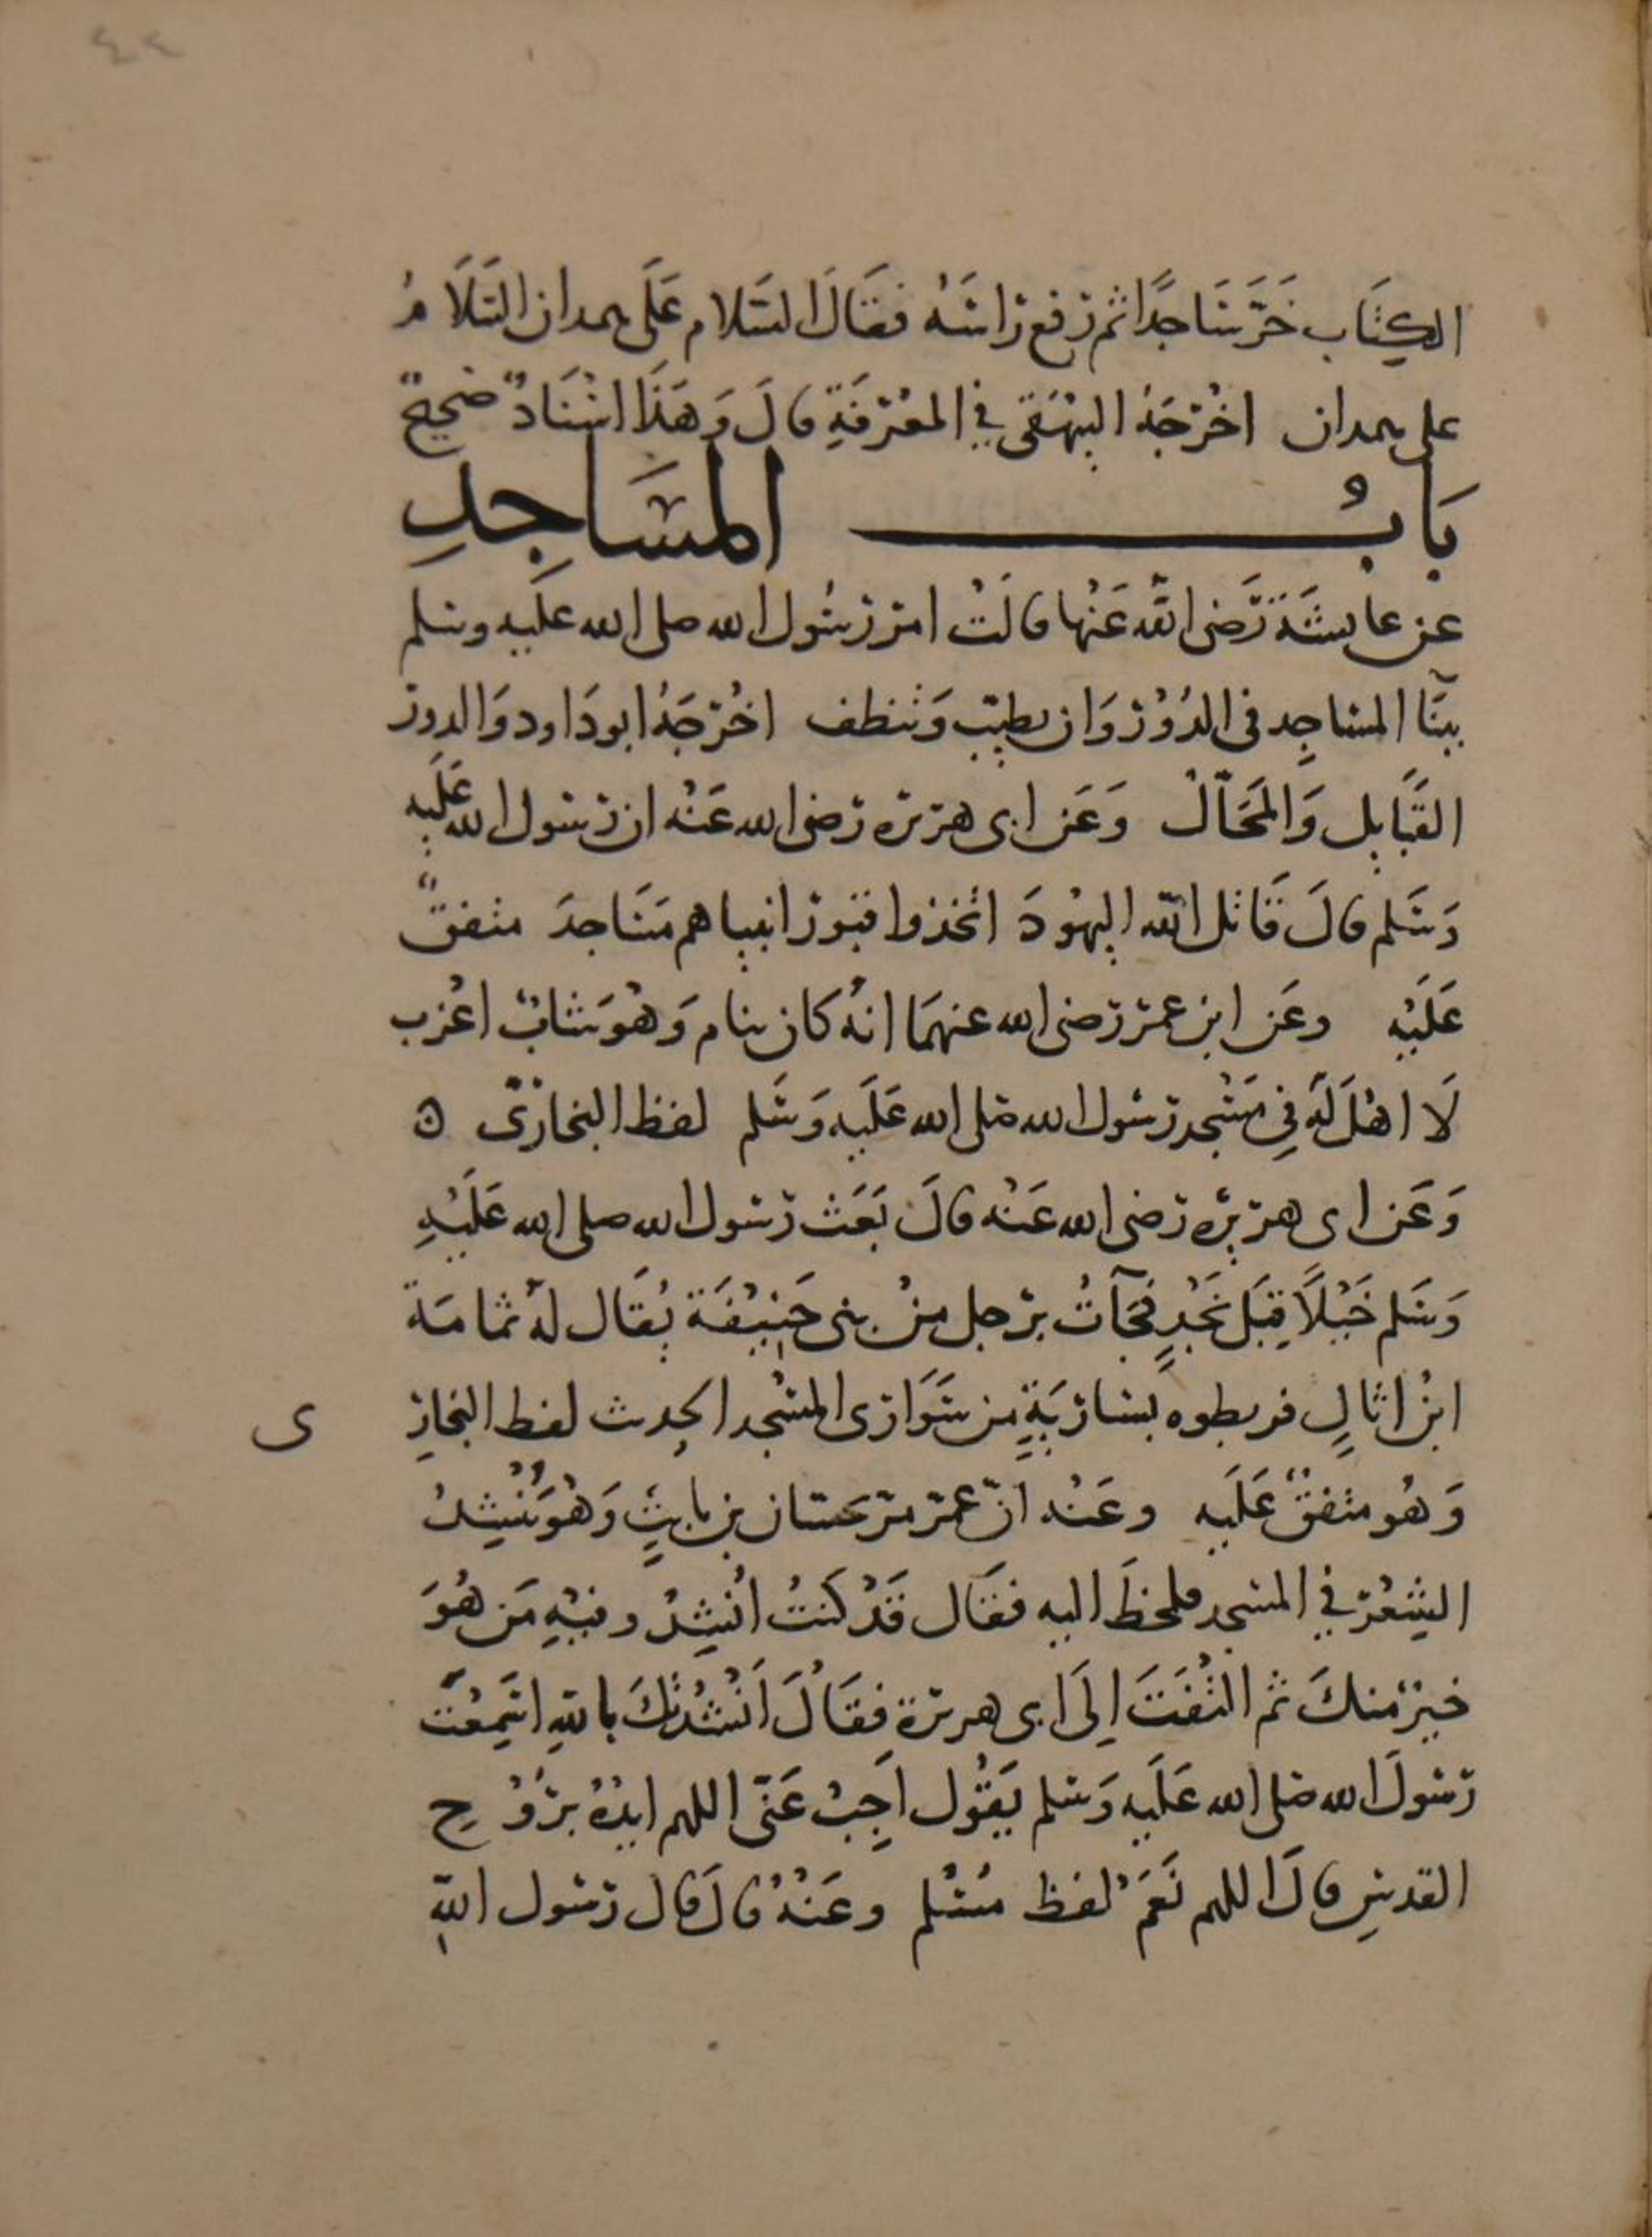 ٤٤
الكِتَاب خَرَّ سَاجدًا ثم رَفع رَاسَهُ فقَالَ السَّلام عَلَى همدان السَّلَامُ
على همدان اخْرجَهُ البيهَقى في المعْرفَةِ قالَ وَهَذَا اسْنَادٌ صَحيحٌ
بَابُ المَسَاجِدِ
عن عايشَة رَّضى اللَّه عَنْها قالَتْ امر رسُول الله صلى الله عليه وسلم
ببنَآ المساجِد فى الدُوْر وَان يطيّب وَتنظف اخْرجَهُ ابو دَاود وَالدور
القَبَايل وَالمَحَالّ وَعَن ابى هريره رضى الله عَنْه ان رسول الله عَلَيه
وَسَلم قالَ قَاتل اللَّه اليهُودَ اتخذوا قبُور انبياهم مَسَاجدَ متفقٌ
عَلَيْه وعَن ابن عمر رضى الله عنهمَا انهُ كان ينام وَهُو شابٌ اعْزب
لَا اهْلَ لَهُ فِى مَسْجد رسُول الله صَلى الله عَلَيه وَسَلم لفظ البخارىّ ه
وَعَن ابى هريرْه رضى الله عَنْه قالَ بَعَث رسُول الله صلى الله عَلَيْهِ
وَسَلم خَيْلًا قِبَل نَجْدٍ فجَآتْ برجل منْ بنى حَنِيْفَة يُقَال لهُ ثمامَة
ابنُ اثالٍ فربطوه بسَاريَةٍ من سَوَارى المسْجد الحِديث لفظ البخار ى
وَهُو متفقٌ عَلَيه وعَنْه انّ عمرَ مرَّ بحسَّان بن ثابتٍ وَهُوَ يُنْشِدُ
الشِعْرَ فِي المسجد فلحَظَ اليه فقَال قَدْ كنتُ انْشِدُ وفيْهِ مَن هُوَ
خيرٌ منكَ ثم التْفَتَ اِلَى ابى هريرة فقَالَ اَنْشُدْتكَ باللهِ اسَمِعْتَ
رسُولَ الله صَلى الله عَلَيه وَسَلم يَقُول اَجِبْ عَنّى اللهم ايّدْهُ برُوْحِ
القدسِ قالَ اللهم نَعَمْ لفظ مُسْلم وعَنْهُ قالَ قال رسُول اللّهِ